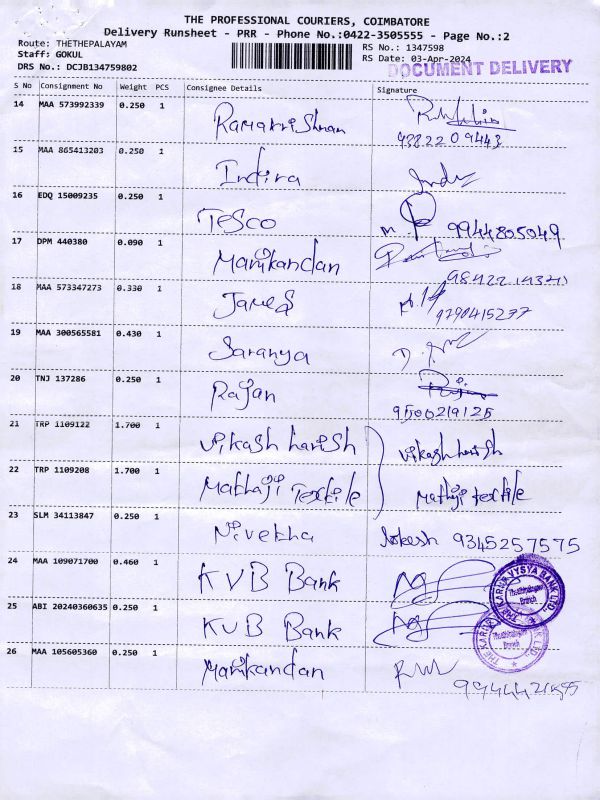 THE PROFESSIONAL COURIERS, COIMBATORE
Delivery Runsheet - PRR - Phone No.:0422-3505555 - Page No.:2
Route: THETHEPALAYAM RS No.: 1347598
Staff: GOKUL RS Date: 03-Apr-2024
DRS No.: DCJB134759802 DOCUMENT DELIVERY
S No Consignment No Weight PCS Consignee Details Signature
14 MAA 573992339 0.250 1 Ramakrishnan
9382209443
15 MAA 865413203 0.250 1 Indira
16 EDQ 15009235 0.250 1 TESCO 9944805049
17 DPM 440380 0.090 1 Manikandan
18 MAA 573347273 0.330 1 James
9790415277
19 MAA 300565581 0.430 1 Saranya
20 TNJ 137286 0.250 1 Rajan
9500219125
21 TRP 1109122 1.700 1 Vikash harish Vikash harish
22 TRP 1109208 1.700 1 Mathaji Textile Mathji textile
23 SLM 34113847 0.250 1 Nivetha lokesh 9345257575
24 MAA 109071700 0.460 1 KVB Bank
THE KARUR VYSYA BANK LTD. Branch
25 ABI 20240360635 0.250 1 KVB Bank
THE KARUR VYSYA BANK LTD. Branch
26 MAA 105605360 0.250 1 Manikandan